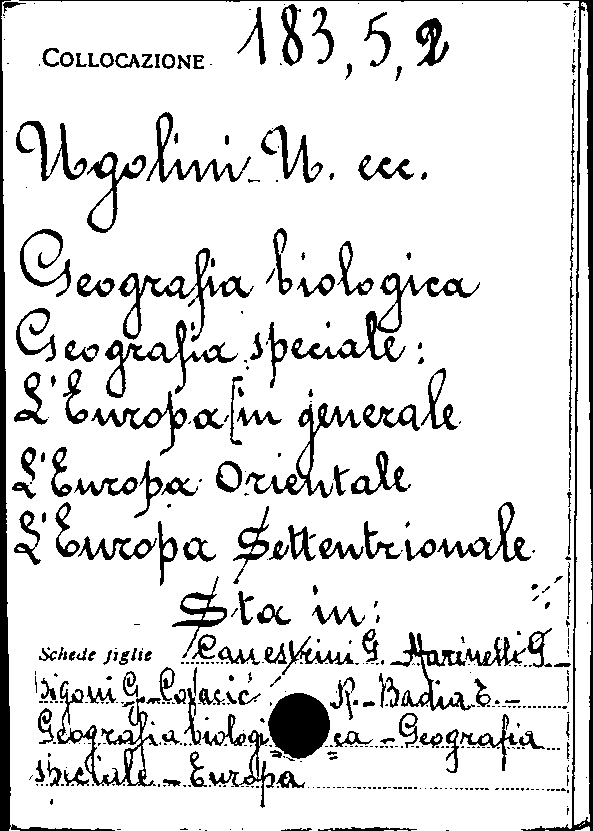 COLLOCAZIONE 183, 5, 2
Ugolini U. ecc.
Geografia biologica
Geografia speciale:
L'Europa [in generale
L'Europa Orientale
L'Europa Settentrionale
Sta in:
Schede figlie Canestrini G. Marinelli G. -
Bigoni G. - Covacic R. - Badia E. -
Geografia biologi = ca - Geografia
speciale - Europa